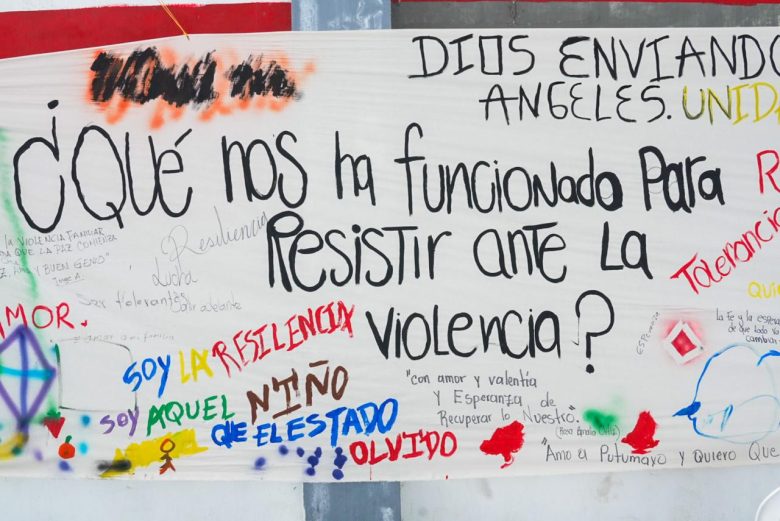 DIOS ENVIANDO
ANGELES. UNIDA
¿QUÉ NOS ha funcionado Para
Resistir ante la
violencia?
la VIOLENCIA FAMILIAR
QUE LA PAZ COMIENZA
Y BUEN GENIO"
Jorge A.
Resiliencia
Lucha
Ser tolerantes
Salir adelante
AMOR.
SOY LA RESILENCIA
SOY AQUEL NIÑO
QUE EL ESTADO
OLVIDO
"con amor y valentía
y Esperanza de
Recuperar lo Nuestro".
"Amo el Putumayo y Quiero Que
R
Tolerancia
Qui
ESPeranza
La fe y la espera
de que todo va
cambiar